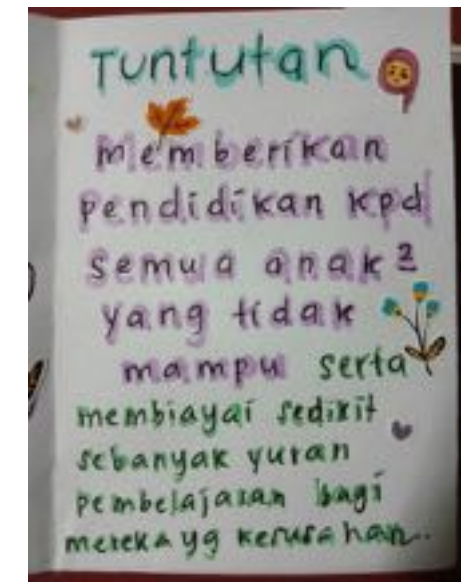 Tuntutan
memberikan
pendidikan kpd
semua anak2
yang tidak
mampu serta
membiayai sedikit
sebanyak yuran
pembelajaran bagi
mereka yg kerusahan..